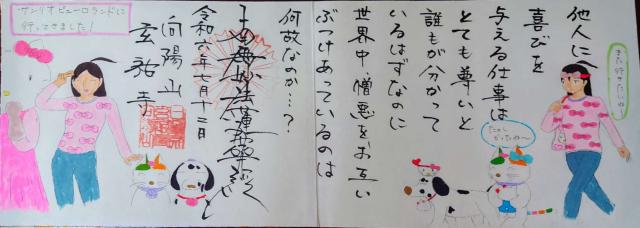 また行きたいね
他人に
喜びを
与える仕事は
とても尊いと
誰もが分かって
いるはずなのに
世界中、憎悪をお互い
ぶつけあっているのは
何故なのか…?
たのし
かったね〜
南無妙法蓮華経
令和六年七月十二日
向陽山
サンリオピューロランドに
行ってきました!